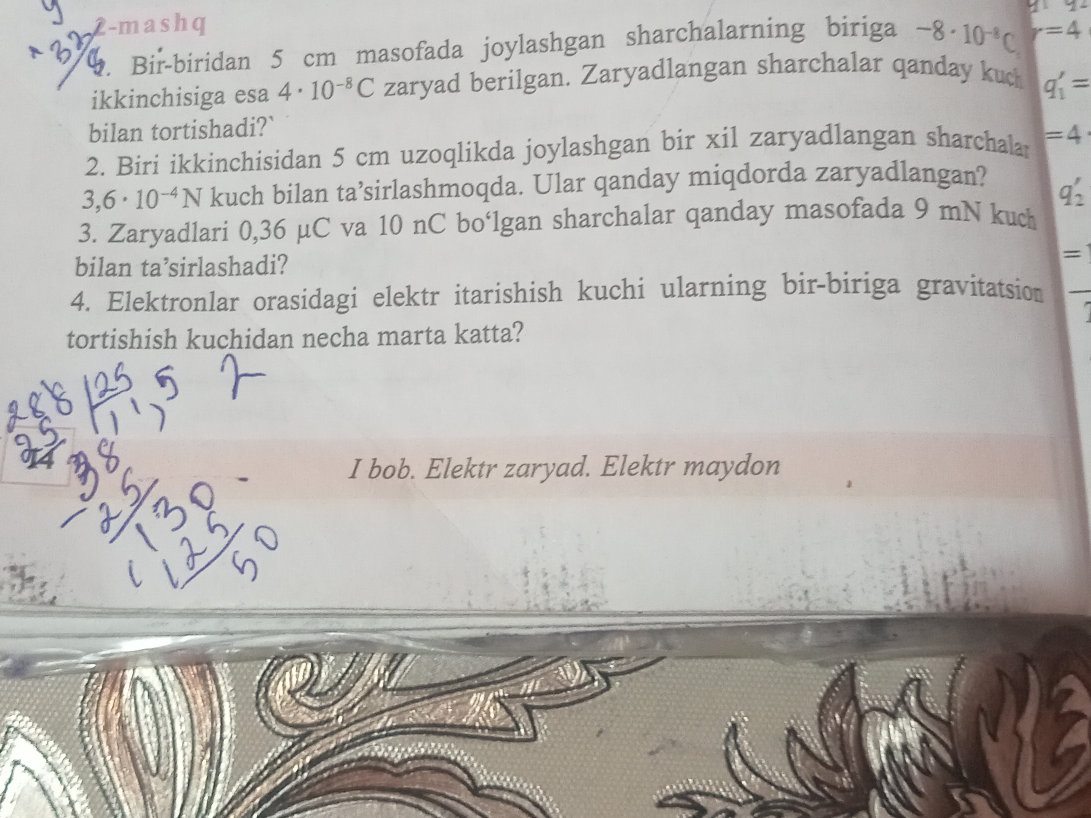 2-mashq
1. Bir-biridan 5 cm masofada joylashgan sharchalarning biriga −8 · 10⁻⁸C,
ikkinchisiga esa 4 · 10⁻⁸C zaryad berilgan. Zaryadlangan sharchalar qanday kuch
bilan tortishadi?
2. Biri ikkinchisidan 5 cm uzoqlikda joylashgan bir xil zaryadlangan sharchalar
3,6 · 10⁻⁴N kuch bilan ta’sirlashmoqda. Ular qanday miqdorda zaryadlangan?
3. Zaryadlari 0,36 μC va 10 nC bo‘lgan sharchalar qanday masofada 9 mN kuch
bilan ta’sirlashadi?
4. Elektronlar orasidagi elektr itarishish kuchi ularning bir-biriga gravitatsion
tortishish kuchidan necha marta katta?
r=4
q′₁ =
=4
q′₂
=
288 125 5
25
14
38
25
130
125
50
I bob. Elektr zaryad. Elektr maydon